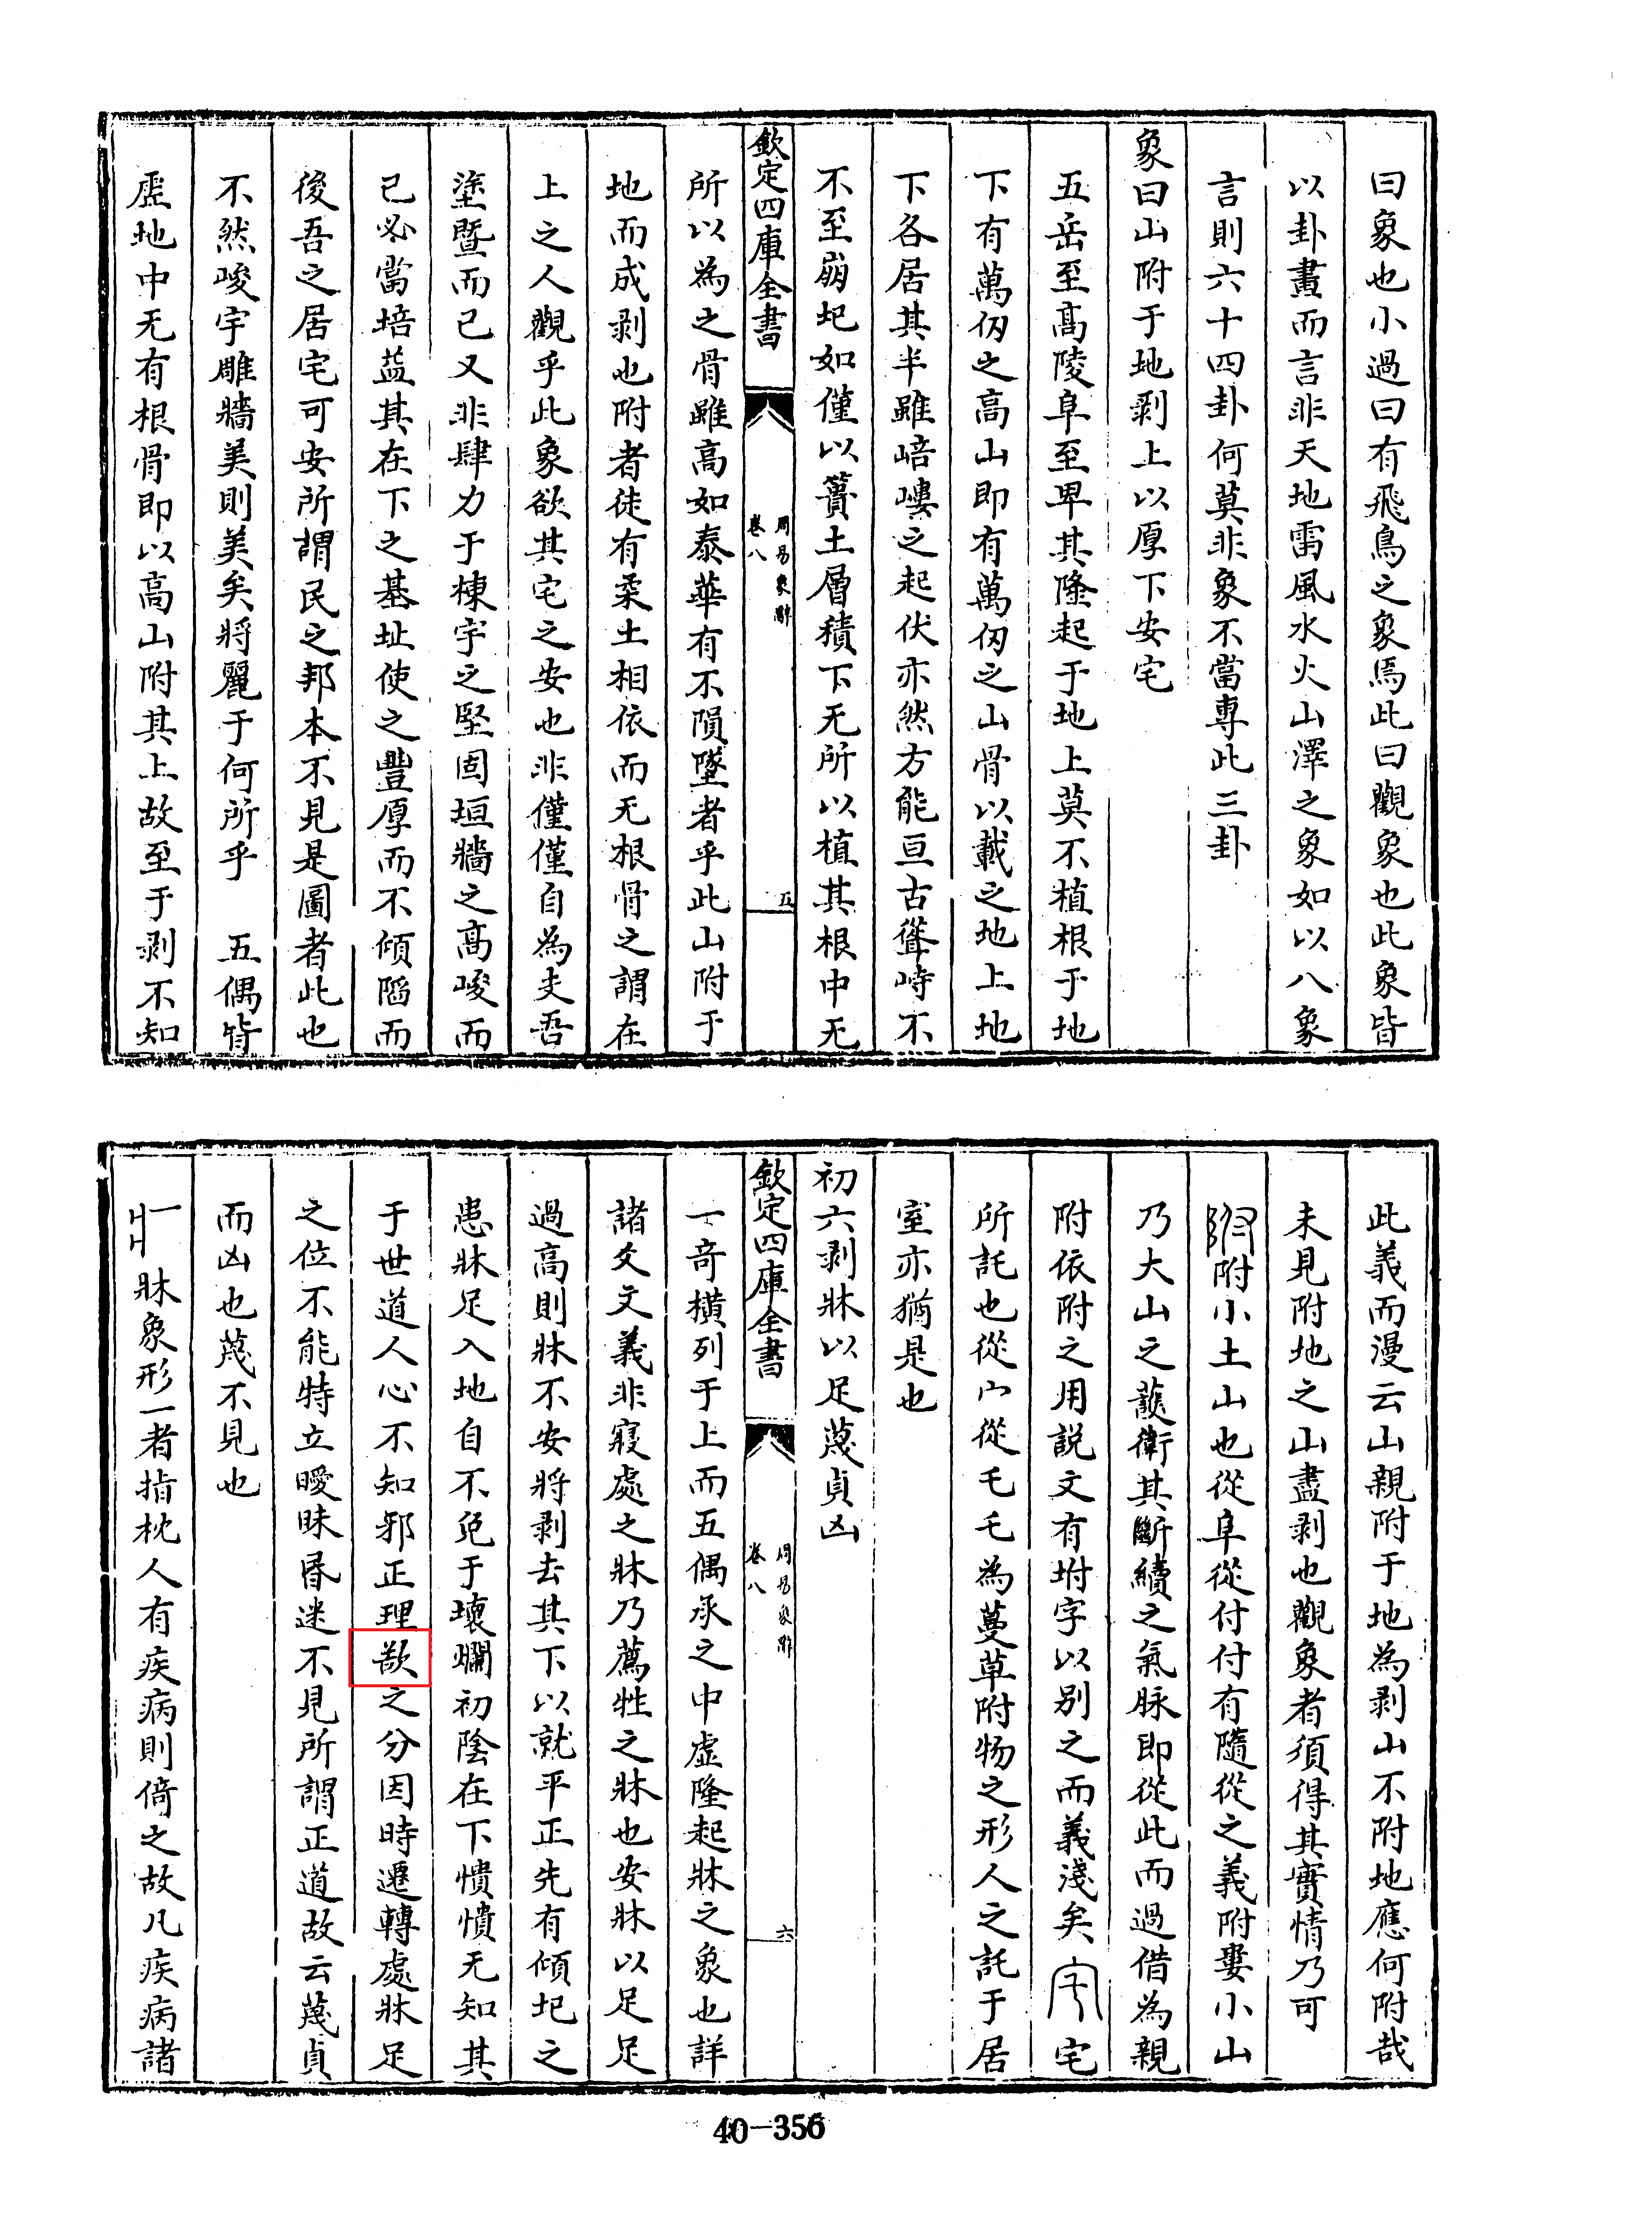 曰象也小過曰有飛鳥之象焉此曰觀象也此象皆
以卦畫而言非天地雷風水火山澤之象如以八象
言則六十四卦何莫非象不當專此三卦
象曰山附于地剥上以厚下安宅
五岳至髙陵阜至卑其隆起于地上莫不植根于地
下有萬仭之高山即有萬仭之山骨以載之地上地
下各居其半雖㟝嶁之起伏亦然方能亘古聳峙不
不至崩圯如僅以簣土層積下无所以植其根中无
欽定四庫全書
周易象辭
卷八
五
所以為之骨雖高如泰華有不隕墜者乎此山附于
地而成剥也附者徒有柔土相依而无根骨之謂在
上之人觀乎此象欲其宅之安也非僅僅自為支吾
塗墍而已又非肆力于棟宇之堅固垣牆之高峻而
己必當培益其在下之基址使之豐厚而不傾陷而
後吾之居宅可安所謂民之邦本不見是圖者此也
不然峻宇雕牆美則美矣將麗于何所乎　五偶皆
虛地中无有根骨即以高山附其上故至于剥不知
此義而漫云山親附于地為剥山不附地應何附哉
未見附地之山盡剥也觀象者須得其實情乃可
附小土山也從阜從付付有隨從之義附婁小山
乃大山之䕶衛其斷續之氣脉即從此而過借為親
附依附之用説文有坿字以别之而義淺矣　宅
所託也從宀從乇乇為蔓草附物之形人之託于居
室亦猶是也
初六剥牀以足蔑貞凶
欽定四庫全書
周易象辭
卷八
六
一竒横列于上而五偶承之中虚隆起牀之象也詳
諸爻文義非寢處之牀乃薦牲之牀也安牀以足足
過高則牀不安將剥去其下以就平正先有傾圯之
患牀足入地自不免于壞爛初陰在下憒憒无知其
于世道人心不知邪正理欲之分因時遷轉處牀足
之位不能特立曖昧昏迷不見所謂正道故云蔑貞
而凶也蔑不見也
牀象形一者指枕人有疾病則倚之故凡疾病諸
40-356